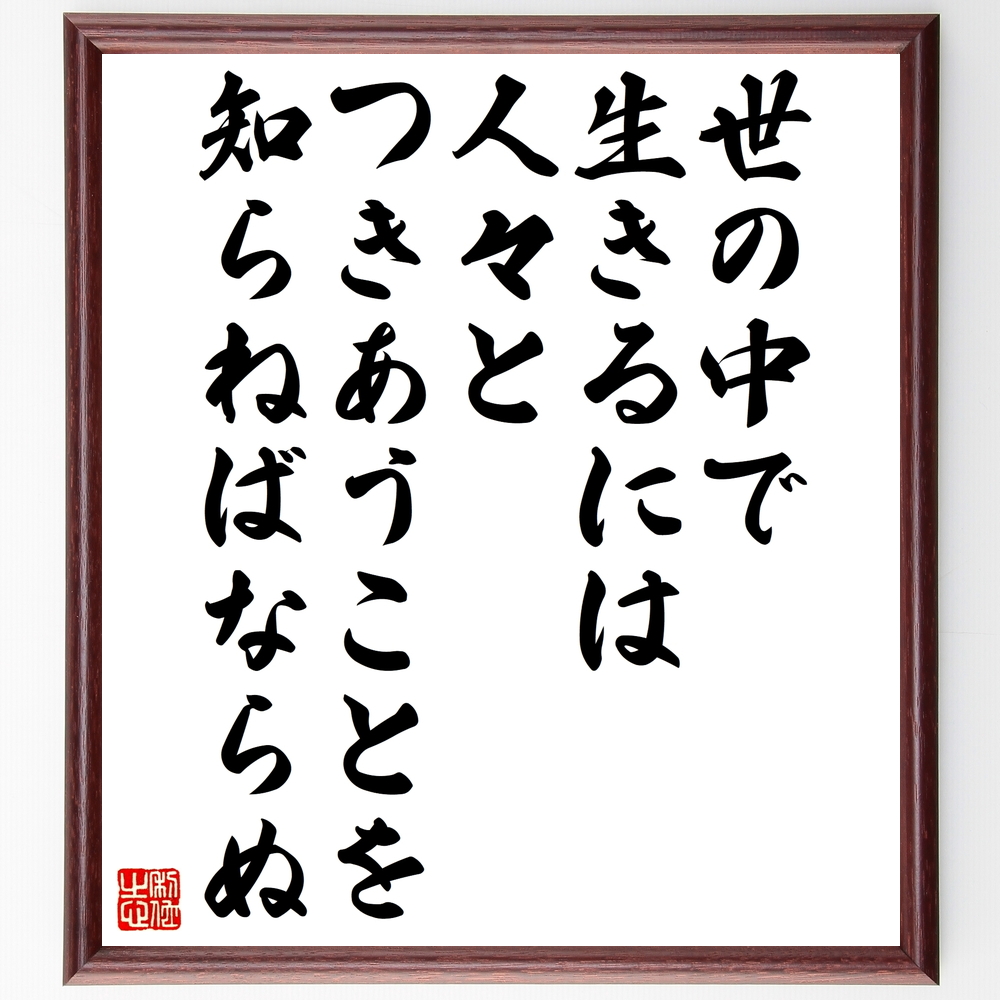 世の中で
生きるには
人々と
つきあうことを
知らねばならぬ